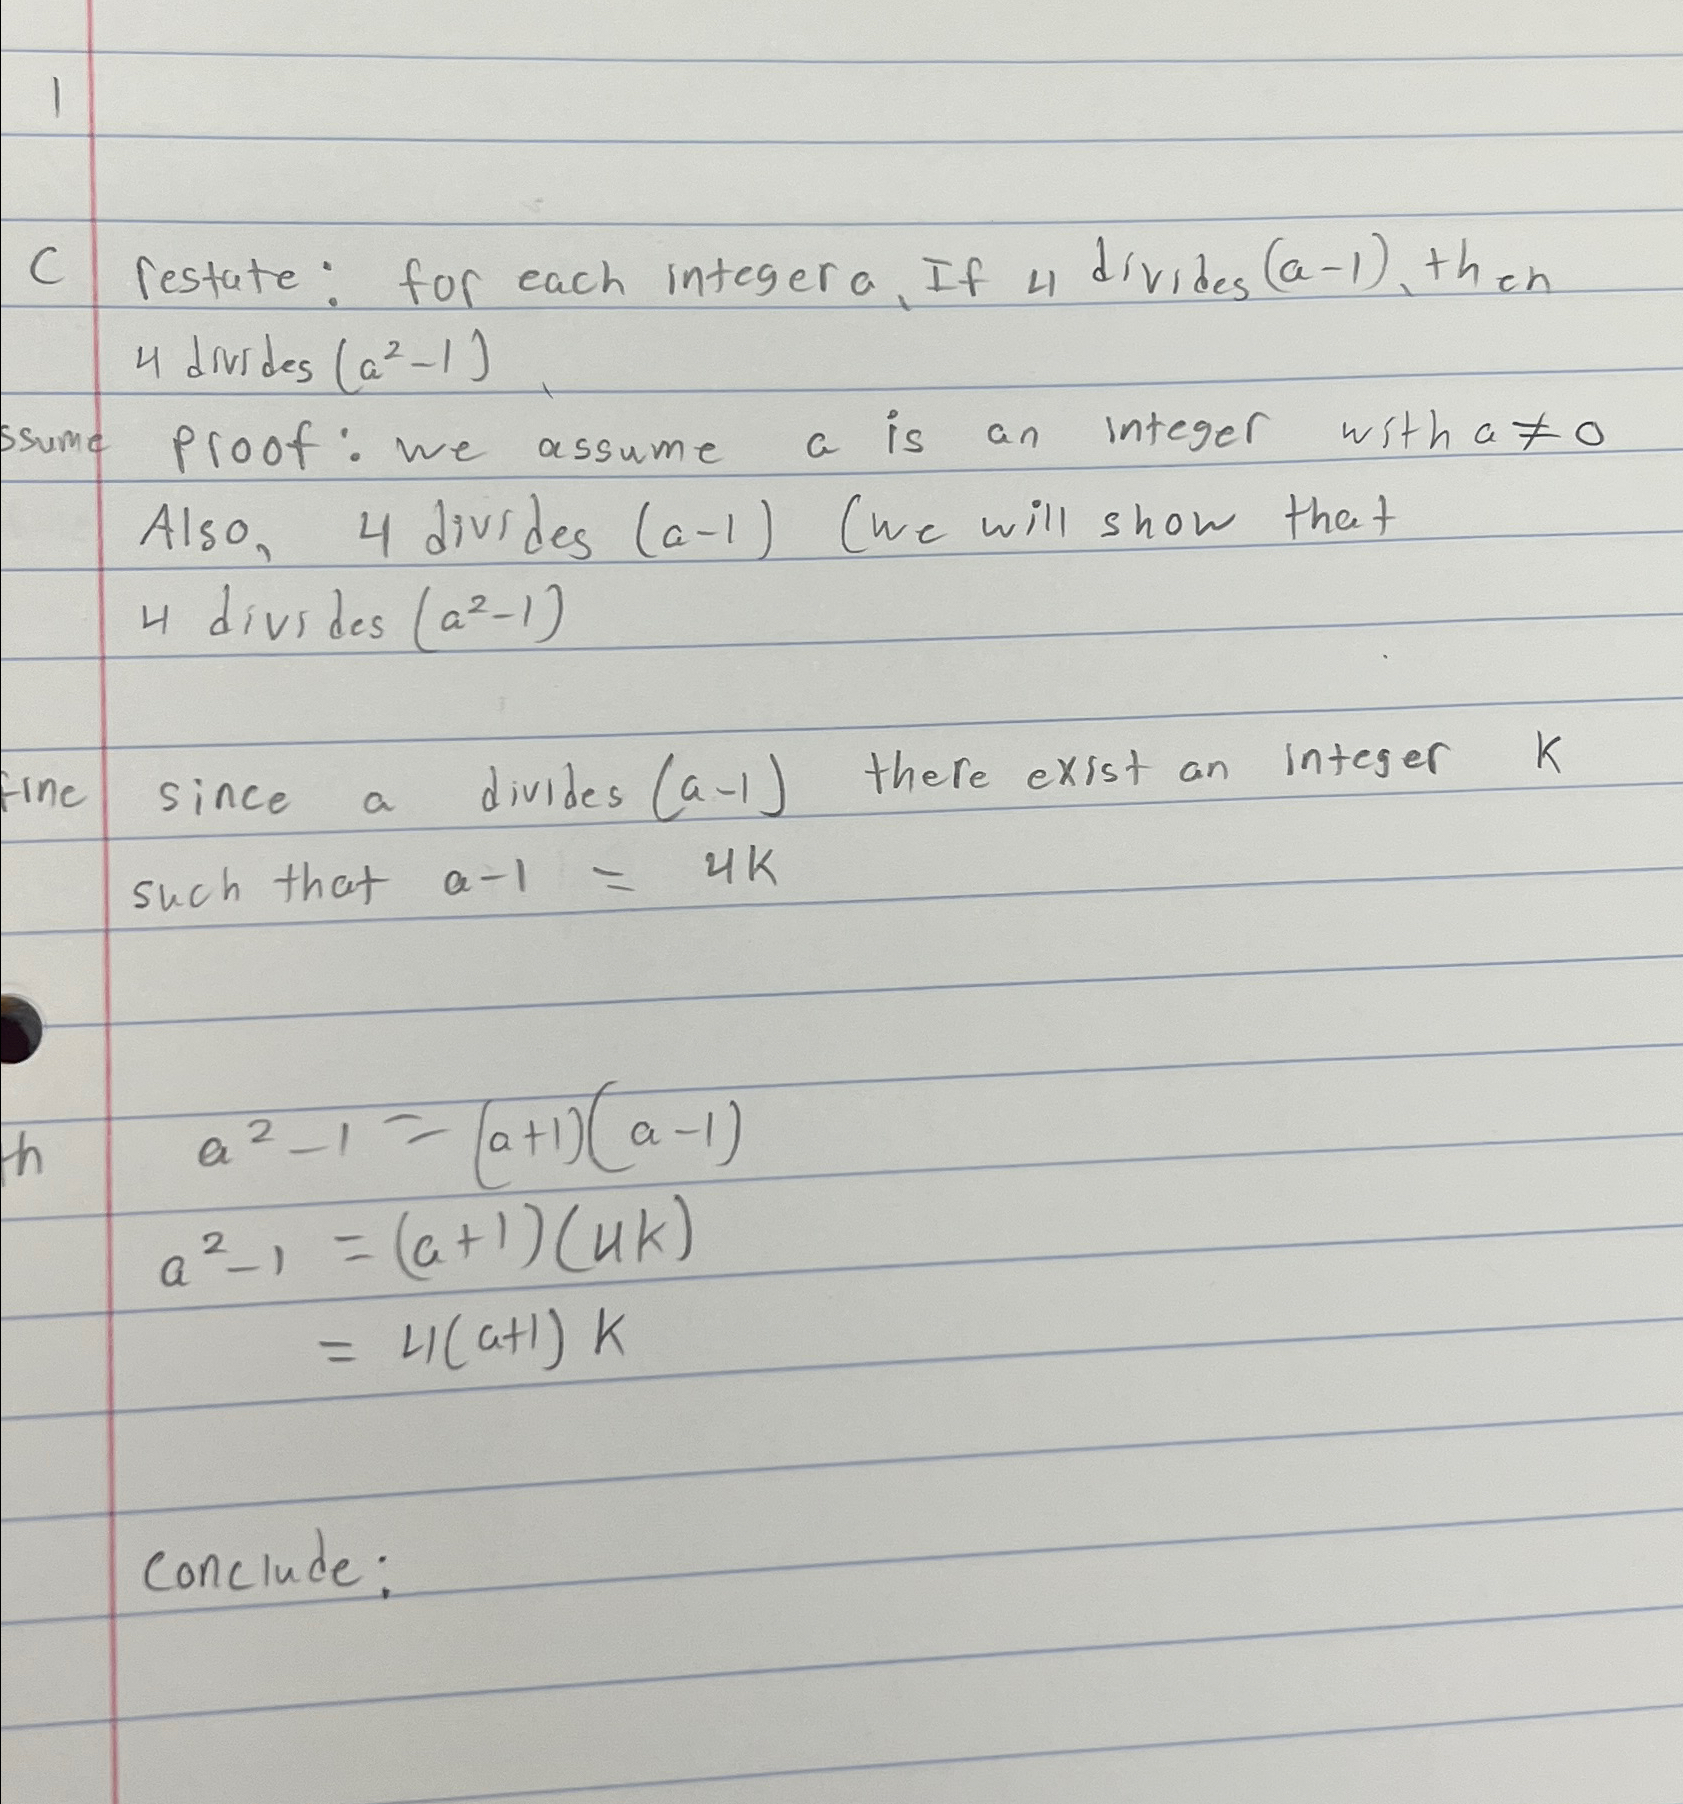 1
C restate: for each integer a, If 4 divides (a-1), then
4 divides (a²-1).
ssume Proof: we assume a is an integer with a ≠ 0
Also, 4 divides (a-1) (we will show that
4 divides (a²-1)
fine since a divides (a-1) there exist an integer K
such that a-1 = 4K
th a²-1 = (a+1)(a-1)
a²-1 = (a+1)(4K)
= 4(a+1) K
Conclude: